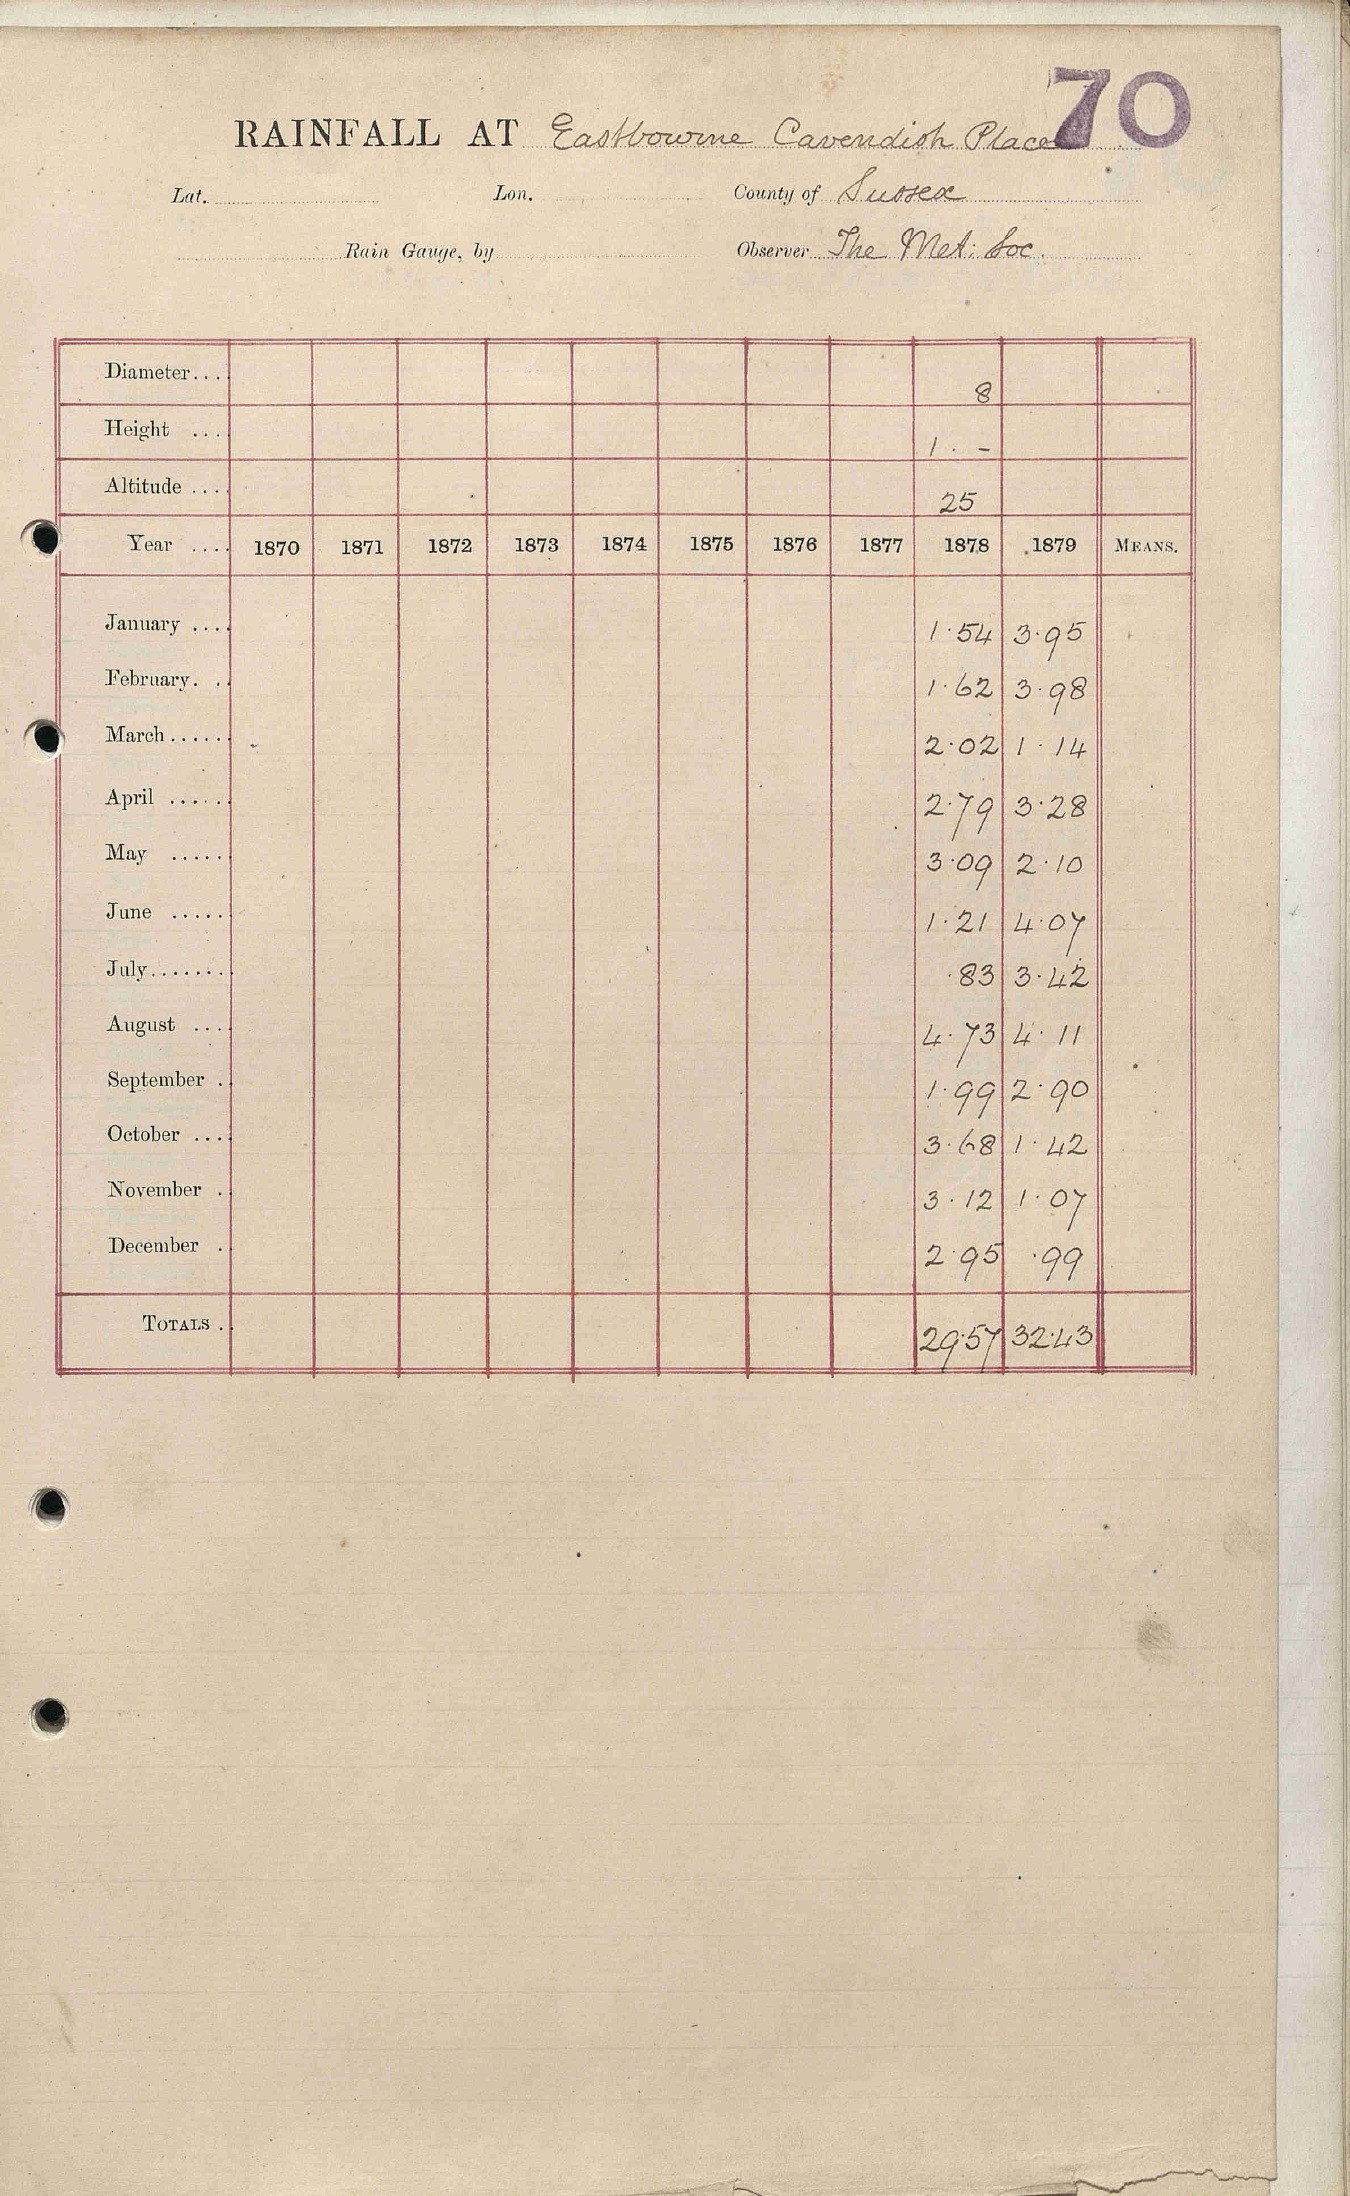 70
RAINFALL AT Eastbourne Cavendish Place
Lat. Lon. County of Sussex
Rain Gauge, by Observer The Met: Soc.
Diameter.... 8
Height .... 1 . -
Altitude .... 25
Year .... 1870 1871 1872 1873 1874 1875 1876 1877 1878 1879 MEANS.
January .... 1.54 3.95
February. .. 1.62 3.98
March...... 2.02 1.14
April ...... 2.79 3.28
May ..... 3.09 2.10
June ..... 1.21 4.07
July....... .83 3.42
August .... 4.73 4.11
September . 1.99 2.90
October .... 3.68 1.42
November . 3.12 1.07
December . 2.95 .99
TOTALS . 29.57 32.43